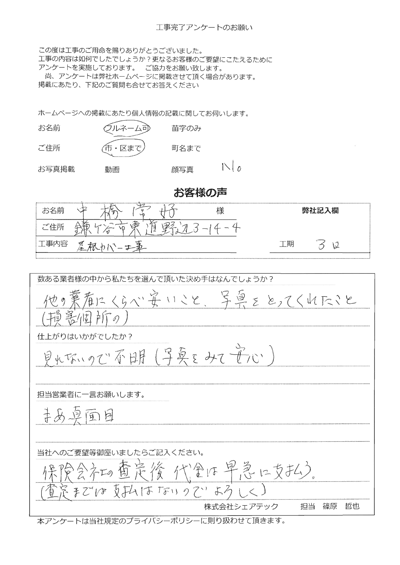 工事完了アンケートのお願い
この度は工事のご用命を賜りありがとうございました。
工事の内容は如何でしたでしょうか?更なるお客様のご要望にこたえるために
アンケートを実施しております。 ご協力をお願い致します。
尚、アンケートは弊社ホームページに掲載させて頂く場合があります。
掲載にあたり、下記のご質問も合せてお答えください。
ホームページへの掲載にあたり個人情報の記載に関してお伺いします。
お名前 フルネーム可 苗字のみ
ご住所 市・区まで 町名まで
お写真掲載 動画 顔写真 No
お客様の声
お名前 中橋 常好 様 弊社記入欄
ご住所 鎌ケ谷市東道野辺3-14-4
工事内容 屋根カバー工事 工期 3日
数ある業者様の中から私たちを選んで頂いた決め手はなんでしょうか?
他の業者にくらべ安いこと、写真をとってくれたこと
(損害個所の)
仕上がりはいかがでしたか?
見れないので不明(写真をみて安心)
担当営業者に一言お願いします。
まあ真面目
当社へのご要望等御座いましたらご記入ください。
保険会社の査定後 代金は早急に支払う。
(査定までは支払はないのでよろしく)
株式会社シェアテック 担当 篠原 哲也
本アンケートは当社規定のプライバシーポリシーに則り扱わせて頂きます。